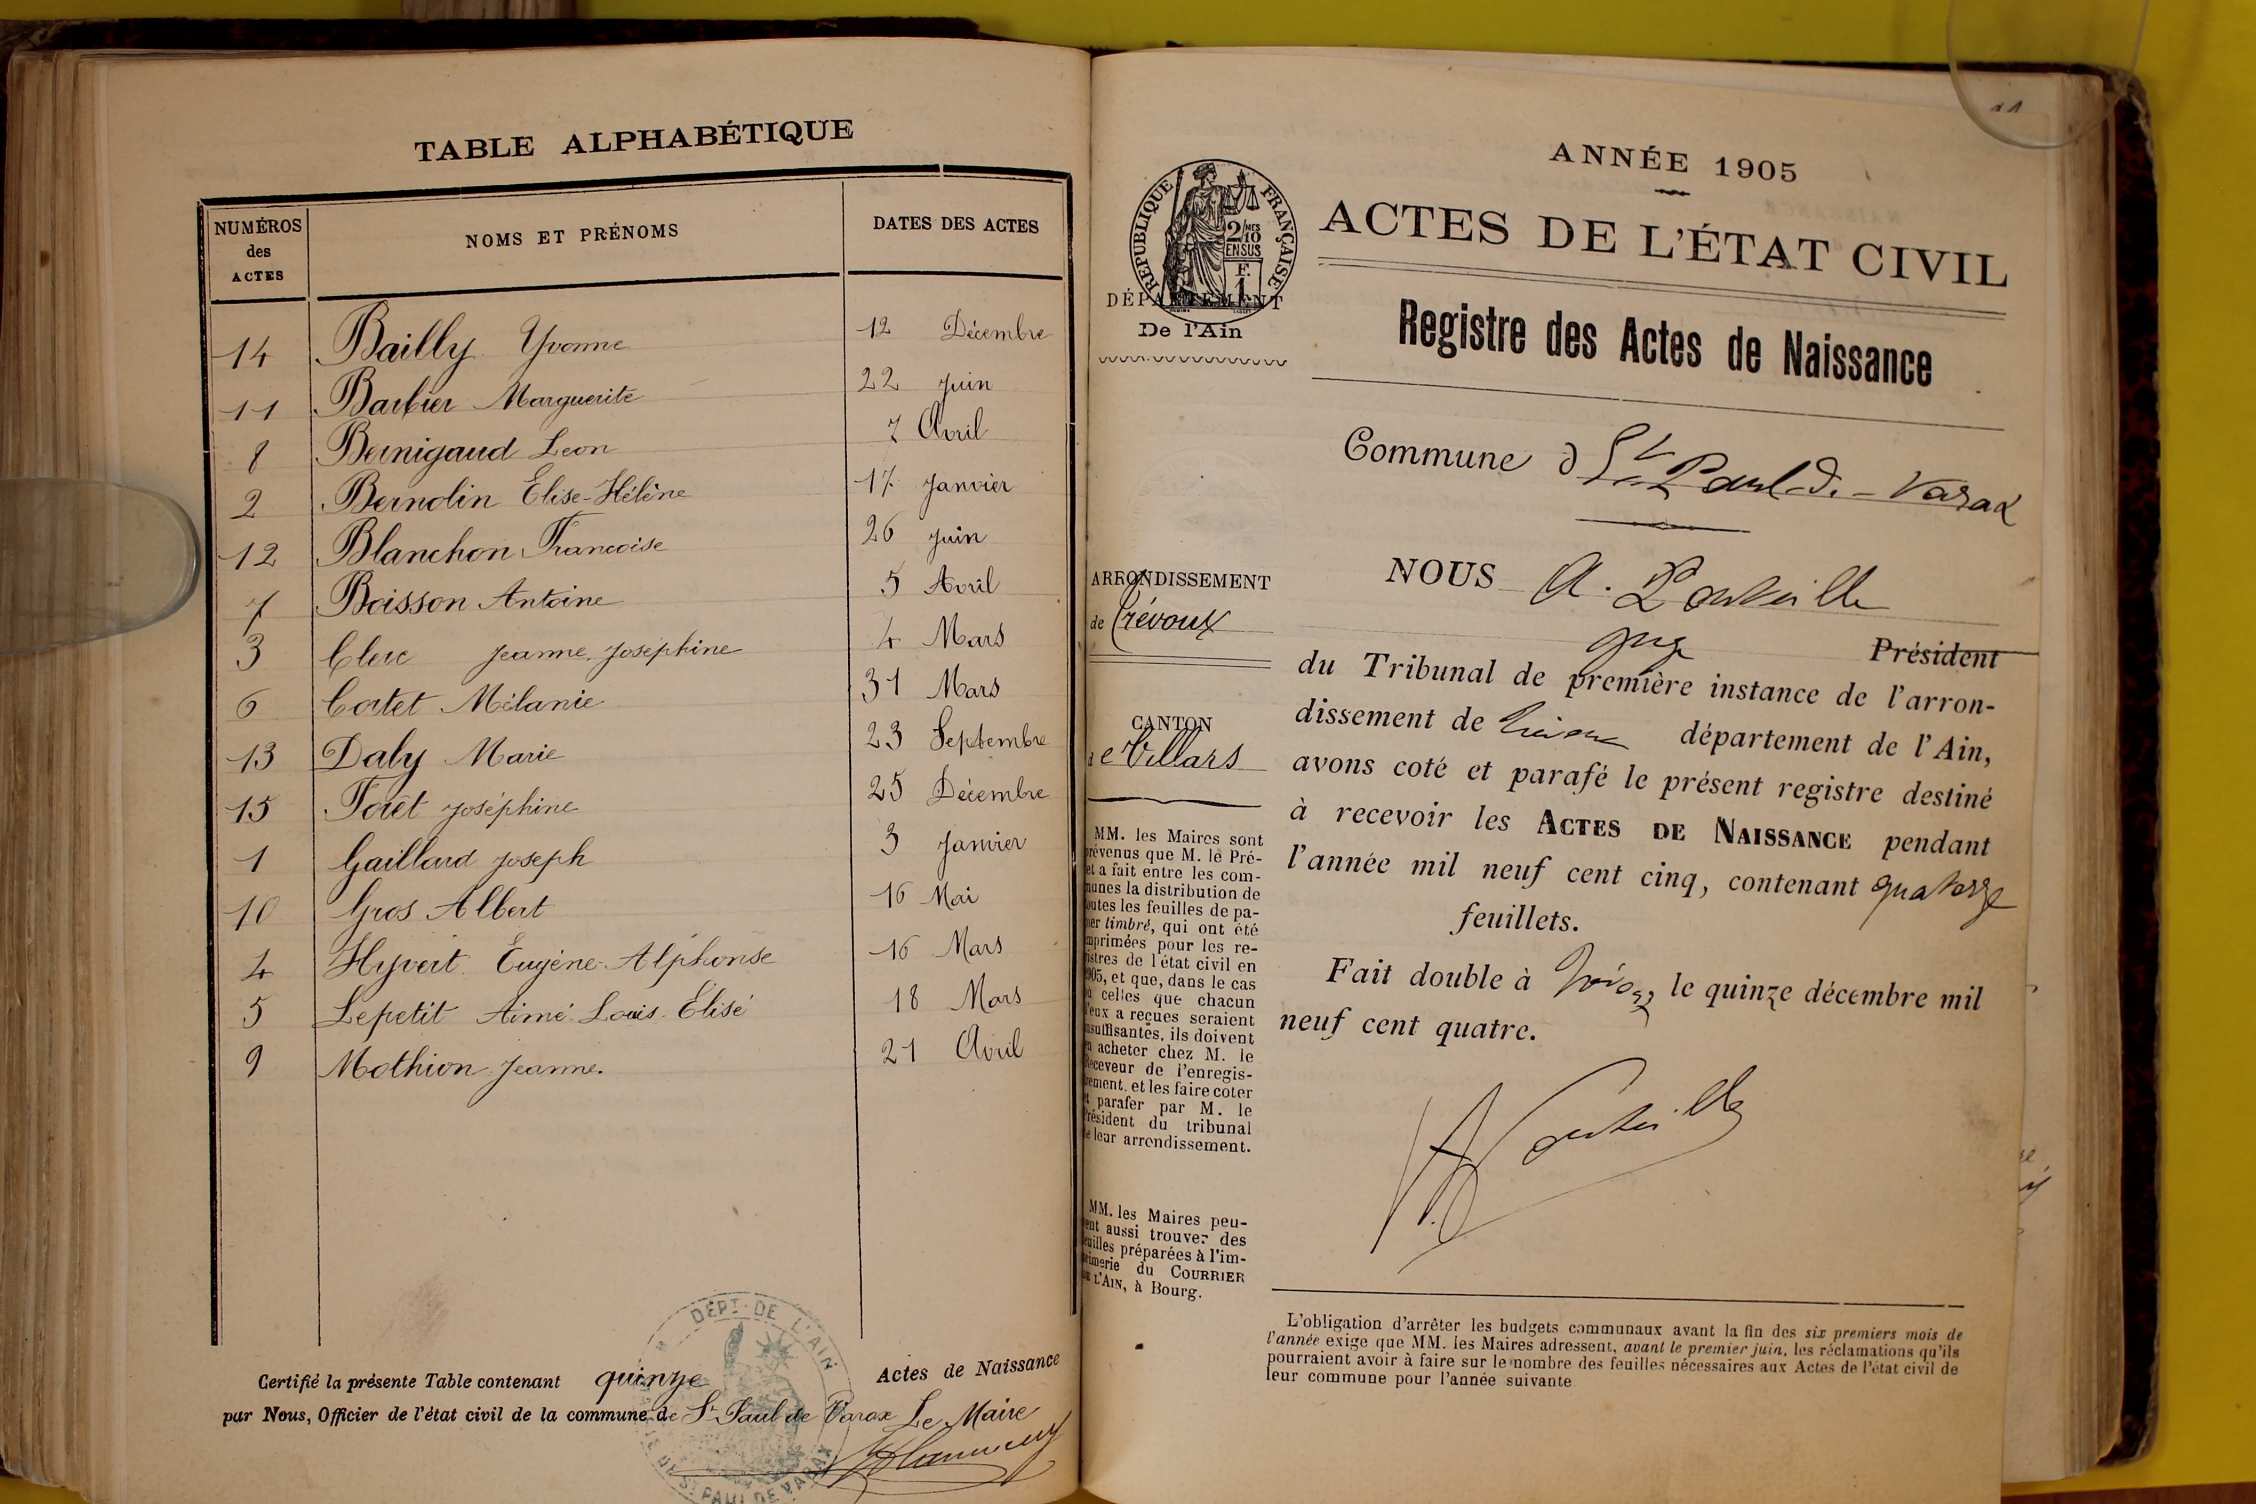 TABLE ALPHABÉTIQUE
NUMÉROS des ACTES NOMS ET PRÉNOMS DATES DES ACTES
14 Bailly Yvonne 12 Décembre
11 Barbier Marguerite 22 juin
8 Bernigaud Leon 7 Avril
2 Bernolin Élise-Hélène 17 janvier
12 Blanchon Francoise 26 juin
7 Boisson Antoine 5 Avril
3 Clerc Jeanne Joséphine 4 Mars
6 Cortet Mélanie 31 Mars
13 Daby Marie 23 Septembre
15 Foret Joséphine 25 Décembre
1 Gaillard Joseph 3 Janvier
10 Gros Albert 16 Mai
4 Hyvert Eugène-Alphonse 16 Mars
5 Lepetit Aimé Louis Élisé 18 Mars
9 Mothion Jeanne. 21 Avril
Certifié la présente Table contenant quinze Actes de Naissance
par Nous, Officier de l'état civil de la commune de St Paul de Varax Le Maire
DÉPT. DE L'AIN
DE ST PAUL DE VARAX
ANNÉE 1905
ACTES DE L'ÉTAT CIVIL
RÉPUBLIQUE FRANÇAISE
2/10 MES EN SUS
F. 1
DÉPARTEMENT
De l'Ain
Registre des Actes de Naissance
Commune d St Paul-d.-Varax
ARRONDISSEMENT
de Trévoux
CANTON
de Villars
MM. les Maires sont
prévenus que M. le Pré-
et a fait entre les com-
munes la distribution de
toutes les feuilles de pa-
pier timbré, qui ont été
imprimées pour les re-
gistres de l'état civil en
1905, et que, dans le cas
où celles que chacun
d'eux a reçues seraient
insuffisantes, ils doivent
en acheter chez M. le
Receveur de l'enregis-
trement, et les faire coter
et parafer par M. le
Président du tribunal
de leur arrondissement.
MM. les Maires peu-
vent aussi trouver des
feuilles préparées à l'im-
primerie du COURRIER
DE L'AIN, à Bourg.
NOUS A.
juge Président
du Tribunal de première instance de l'arron-
dissement de Trévoux département de l'Ain,
avons coté et parafé le présent registre destiné
à recevoir les ACTES DE NAISSANCE pendant
l'année mil neuf cent cinq, contenant quatorze
feuillets.
Fait double à Trévoux, le quinze décembre mil
neuf cent quatre.
L'obligation d'arrêter les budgets communaux avant la fin des six premiers mois de
l'année exige que MM. les Maires adressent, avant le premier juin, les réclamations qu'ils
pourraient avoir à faire sur le nombre des feuilles nécessaires aux Actes de l'état civil de
leur commune pour l'année suivante